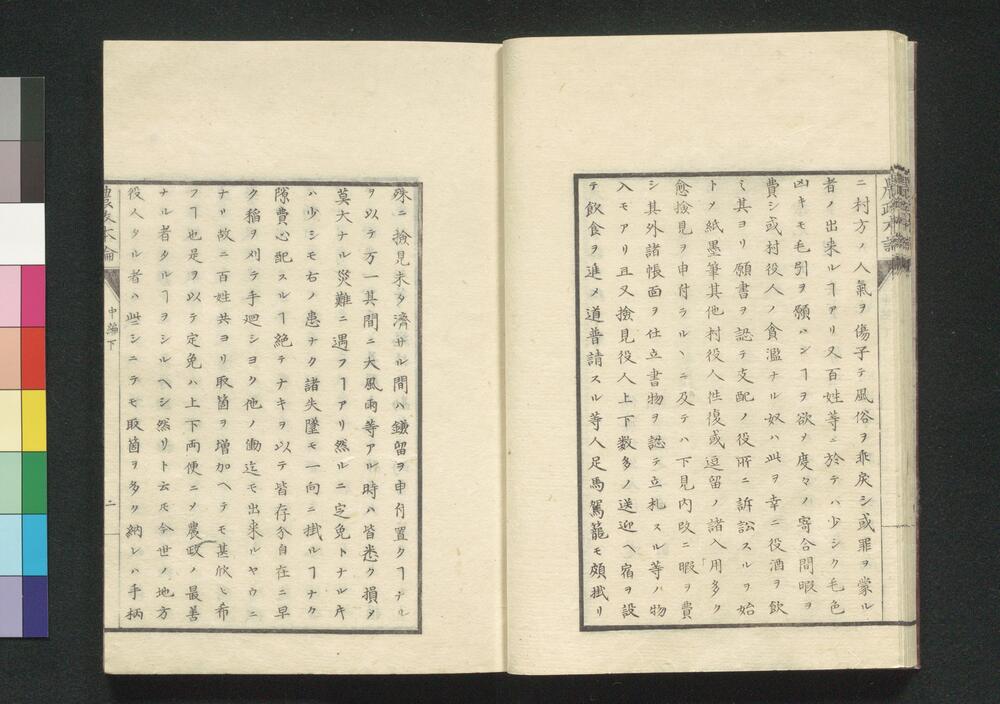 ニ村方ノ人氣ヲ傷子テ風俗ヲ乖戾シ或罪ヲ蒙ル
者ノ出来ルヿアリ又百姓等ニ於テハ少シク毛色
凶キモ毛引ヲ願ハンヿヲ欲メ度々ノ寄合間暇ヲ
費シ或村役人ノ貪濫ナル奴ハ此ヲ幸ニ役酒ヲ飲
ミ其ヨリ願書ヲ認テ支配ノ役所ニ訴訟スルヲ始
トメ紙墨筆其他村役人徃復或逗留ノ諸入用多ク
愈撿見ヲ申付ラルヽニ及テハ下見内改ニ暇ヲ費
シ其外諸帳面ヲ仕立書物ヲ認テ立札スル等ノ物
入モアリ且又撿見役人上下数多ノ送迎ヘ宿ヲ設
テ飲食ヲ進メ道普請スル等人足馬駕籠モ頗掛リ
殊ニ撿見未タ濟サル間ハ鎌留ヲ申付置クヿナル
ヲ以テ万一其間ニ大風雨等アル時ハ皆悉ク損タ
莫大ナル災難ニ遇フヿアリ然ルニ定免トナル片
ハ少シモ右ノ患ナク諸失墜モ一向ニ掛ルヿナク
隙費心配スルヿ絶テナキヲ以テ皆存分自在ニ早
ク稲ヲ刈テ手廻シヨク他ノ働迄モ出来ルヤウニ
ナリ故ニ百姓共ヨリ取箇ヲ增加ヘテモ甚欣ヒ希
フヿ也是ヲ以テ定免ハ上下両便ニメ農政ノ最善
ナル者タルヿヲシルヘシ然リト云モ今世ノ地方
役人タル者ハ些シニテモ取箇ヲ多ク納レハ手柄
農政本論
中編下
二